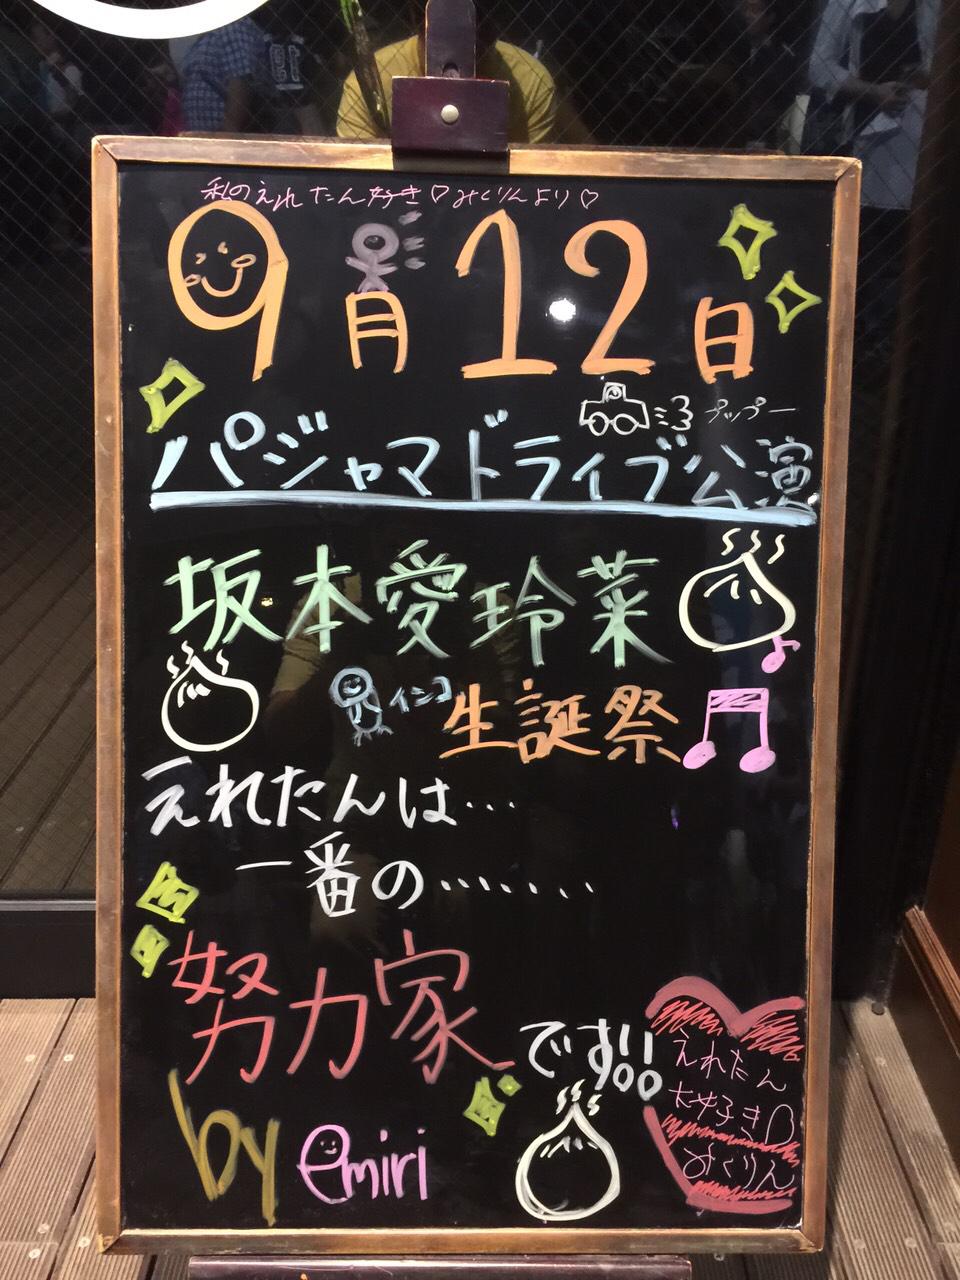 私のえれたん好き♡みくりんより♡
9月12日
プップー
パジャマドライブ公演
坂本愛玲菜
インコ
生誕祭
えれたんは…
一番の.......
努力家
です!!
by emiri
えれたん
大好き♡
みくりん